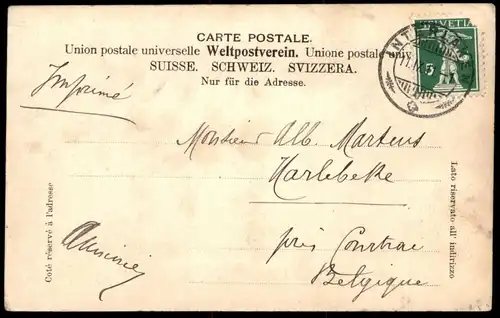 CARTE POSTALE.
Union postale universelle Weltpostverein. Unione postale
SUISSE. SCHWEIZ. SVIZZERA.
Nur für die Adresse.
HELVETIA
5
Imprimé
Monsieur Alb. Martens
Harlebeke
près Courtrai
Belgique
Côté réservé à l'adresse
Lato riservato all' indirizzo